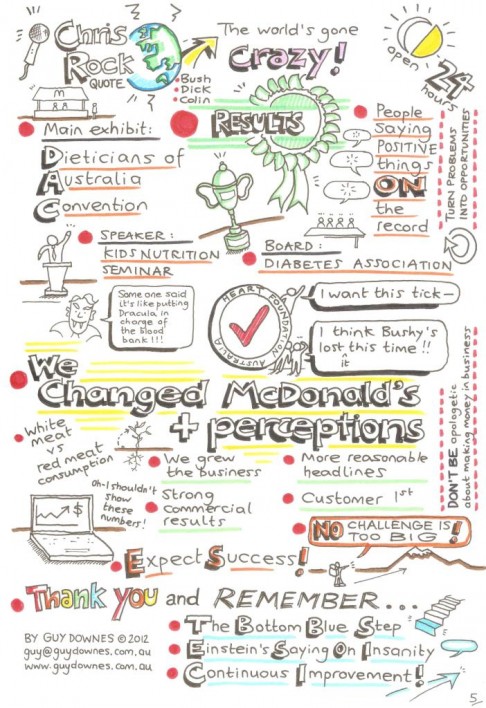 Chris
Rock
QUOTE
The world's gone
crazy!
• Bush
• Dick
• Colin
open
24
hours
M
Main exhibit:
Dieticians of
Australia
Convention
RESULTS
People
Saying
POSITIVE
things
ON
the
record
TURN PROBLEMS
INTO OPPORTUNITIES
SPEAKER:
KIDS NUTRITION
SEMINAR
BOARD:
DIABETES ASSOCIATION
Some one said
it's like putting
Dracula in
charge of
the Blood
bank!!!
HEART FOUNDATION AUSTRALIA
I want this tick—
I think Bushy's
lost this time!!
it
We
Changed McDonald's
+ perceptions
DON'T BE apologetic
about making money in business
white
meat
vs
red meat
consumption
We grew
the business
More reasonable
headlines
oh-I shouldn't
show
these
numbers!
$
Strong
commercial
results
Customer 1st
NO CHALLENGE IS
TOO BIG!
Expect Success!
Thank you and REMEMBER...
The Bottom Blue Step
Einstein's Saying On Insanity
Continuous Improvement!
BY GUY DOWNES © 2012
guy@guydownes.com.au
www.guydownes.com.au
5